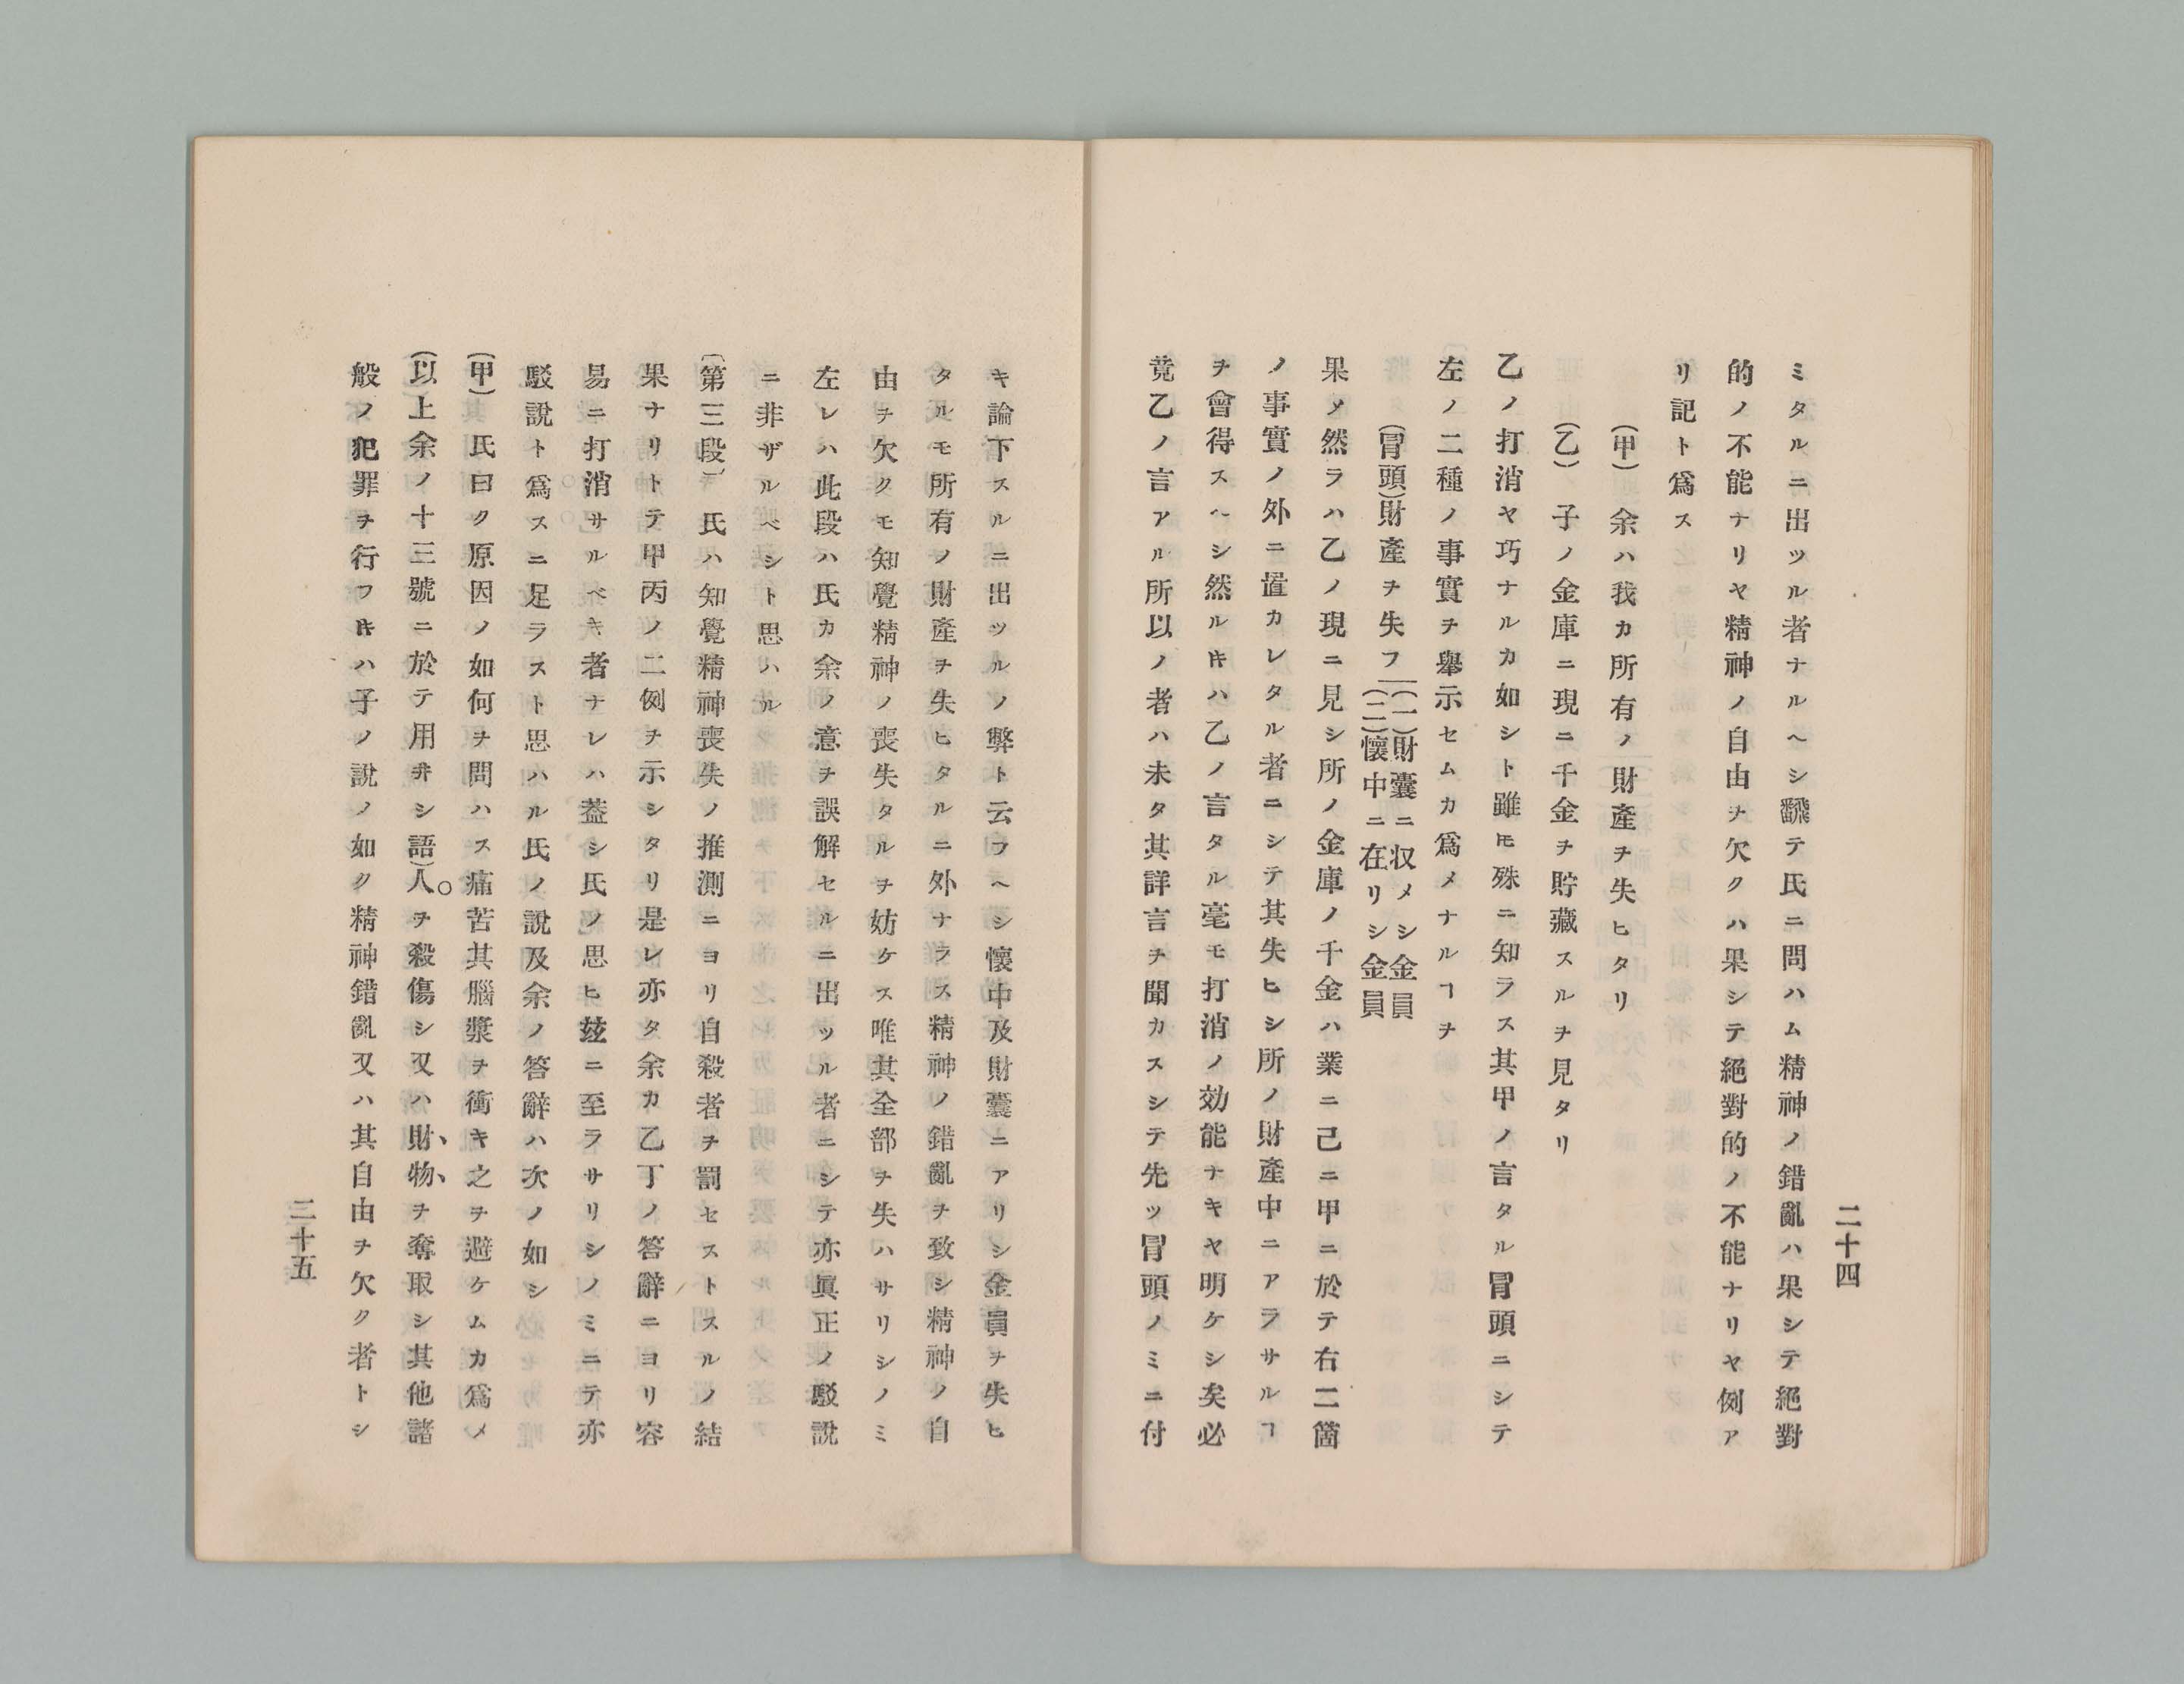 二十四
ミタルニ出ツル者ナルヘシ飜テ氏ニ問ハム精神ノ錯亂ハ果シテ絕對
的ノ不能ナリヤ精神ノ自由ヲ欠クハ果シテ絕對的ノ不能ナリヤ例ア
リ記ト爲ス
(甲) 余ハ我カ所有ノ財產ヲ失ヒタリ
(乙) 子ノ金庫ニ現ニ千金ヲ貯藏スルヲ見タリ
乙ノ打消ヤ巧ナルカ如シト雖𪜈殊ニ知ラス其甲ノ言タル冐頭ニシテ
左ノ二種ノ事實ヲ舉示セムカ爲メナルヿヲ
(冐頭)財產ヲ失フ
(一)財囊ニ収メシ金員
(二)懷中ニ在リシ金員
果〆然ラハ乙ノ現ニ見シ所ノ金庫ノ千金ハ業ニ己ニ甲ニ於テ右二箇
ノ事實ノ外ニ置カレタル者ニシテ其失ヒシ所ノ財產中ニアラサルヿ
ヲ會得スヘシ然ル𪜈ハ乙ノ言タル毫モ打消ノ効能ナキヤ明ケシ矣必
竟乙ノ言アル所以ノ者ハ未タ其詳言ヲ聞カスシテ先ツ冐頭ノミニ付
キ論下スルニ出ツルノ弊ト云フヘシ懷中及財囊ニアリシ金員ヲ失ヒ
タルモ所有ノ財產ヲ失ヒタルニ外ナラス精神ノ錯亂ヲ致シ精神ノ自
由ヲ欠クモ知覺精神ノ喪失タルヲ妨ケス唯其全部ヲ失ハサリシノミ
左レハ此段ハ氏カ余ノ意ヲ誤解セルニ出ツル者ニシテ亦眞正ノ駁說
ニ非ザルベシト思ハル
(第三段) 氏ハ知覺精神喪失ノ推測ニヨリ自殺者ヲ罰セストスルノ結
果ナリトテ甲丙ノ二例ヲ示シタリ是レ亦タ余カ乙丁ノ答辭ニヨリ容
易ニ打消サルベキ者ナレハ葢シ氏ノ思ヒ玆ニ至ラサリシノミニテ亦
駁說ト爲スニ足ラスト思ハル氏ノ說及余ノ答辭ハ次ノ如シ
(甲) 氏曰ク原因ノ如何ヲ問ハス痛苦其腦漿ヲ衝キ之ヲ避ケムカ爲メ
(以上余ノ十三號ニ於テ用ヰシ語)人ヲ殺傷シ又ハ財物ヲ奪取シ其他諸
般ノ犯罪ヲ行フ𪜈ハ子ノ說ノ如ク精神錯亂又ハ其自由ヲ欠ク者トシ
二十五